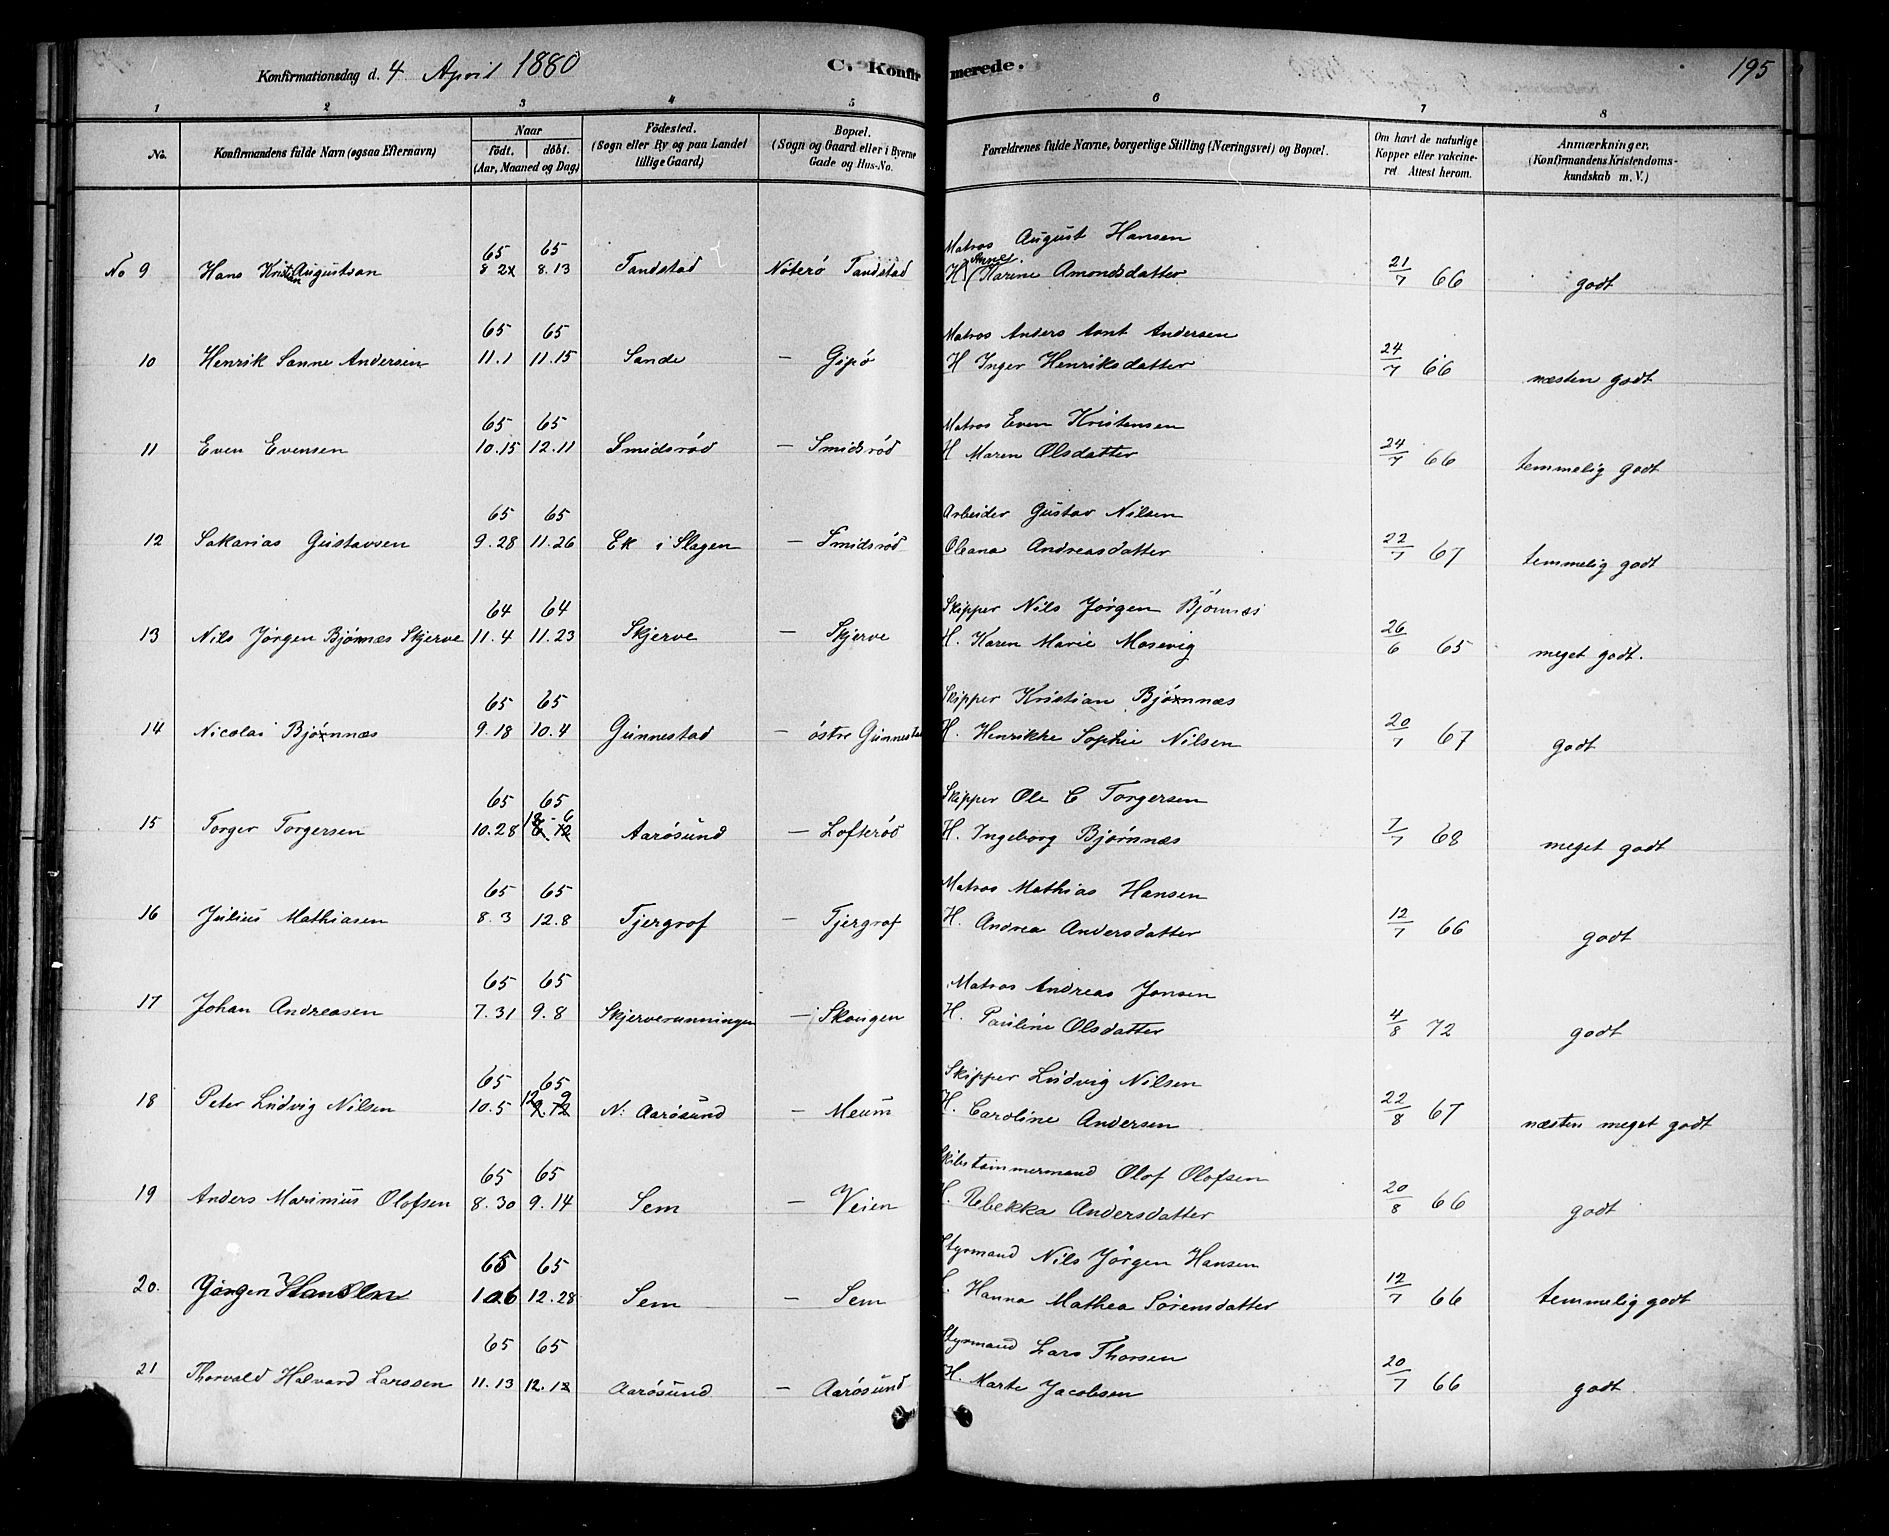 Konfirmationsdag d. 4 April 1880
C. Konfirmerede.
195
1 2 3 4 5 6 7 8
No. | Konfirmandens fulde Navn (ogsaa Efternavn) | Naar født. døbt. (Aar, Maaned og Dag) | Fødested. (Sogn eller By og paa Landet tillige Gaard) | Bopæl. (Sogn og Gaard eller i Byerne Gade og Hus-No. | Forældrenes fulde Navne, borgerlige Stilling (Næringsvei) og Bopæl. | Om havt de naturlige Kopper eller vakcineret Attest herom. | Anmærkninger. (Konfirmandens Kristendomskundskab m. V.)
65 65 Matros August Hansen
No 9 Hans Kristian Augustsen 8 2 8.13 Tandstad Nøterø Tandstad H (Anne Karine Amondsdatter 21/7 66 godt
65 65 Matros Anders Arnt Andersen
10 Henrik Sanne Andersen 11.1 11.15 Sande — Gipø H Inger Henriksdatter 24/7 66 næsten godt
65 65 Matros Even Kristensen
11 Even Evensen 10.15 12.11 Smidsrød — Smidsrød H Maren Olsdatter 24/7 66 temmelig godt
65 65 Arbeider Gustav Nilsen
12 Sakarias Gustavsen 9.28 11.26 Ek i Slagen — Smidsrød Oleana Andreasdatter 22/7 67 temmelig godt
64 64 Skipper Nils Jørgen Bjønnes
13 Nils Jørgen Bjønnæs Skjerve 11.4 11.23 Skjerve — Skjerve H. Karen Marie Mosevig 26/6 65 meget godt.
65 65 Skipper Kristian Bjønnæs
14 Nicolai Bjønnæs 9.18 10.4 Gunnestad — østre Gunnestad H. Henrikke Sophie Nilsen 20/7 67 godt
65 65 Skipper Ole C Torgersen
15 Torger Torgersen 10.28 12-6 6.12 Aarøsund — Lofterød H. Ingeborg Bjørnnæs 7/7 68 meget godt
65 65 Matros Mathias Hansen
16 Julius Mathiasen 8.3 12.8 Tjergraf — Tjergraf H. Andrea Andersdatter 12/7 66 godt
65 65 Matros Andreas Jonsen
17 Johan Andreasen 7.31 9.8 Skjerverunningen — Skougen H. Pauline Olsdatter 4/8 72 godt
65 65 Skipper Ludvig Nilsen
18 Peter Ludvig Nilsen 10.5 12 9 9.12 N: Aarøsund — Meum H. Caroline Andersen 22/8 67 næsten meget godt
65 65 Skibstømmermand Olof Olofsen
19 Anders Marinius Olofsen 8.30 9.14 Sem — Veien H. Rebekka Andersdatter 20/8 66 godt
65 65 Styrmand Nils Jørgen Hansen
20. Jørgen Hansen 10.6 12.28 Sem — Sem H. Hanna Mathea Sørensdatter 12/7 66 temmelig godt
65 65 Styrmand Lars Thorsen
21 Thorvald Halvard Larssen 11.13 12.12 Aarøsund — Aarøsund H. Marte Jacobsen 20/7 66 godt